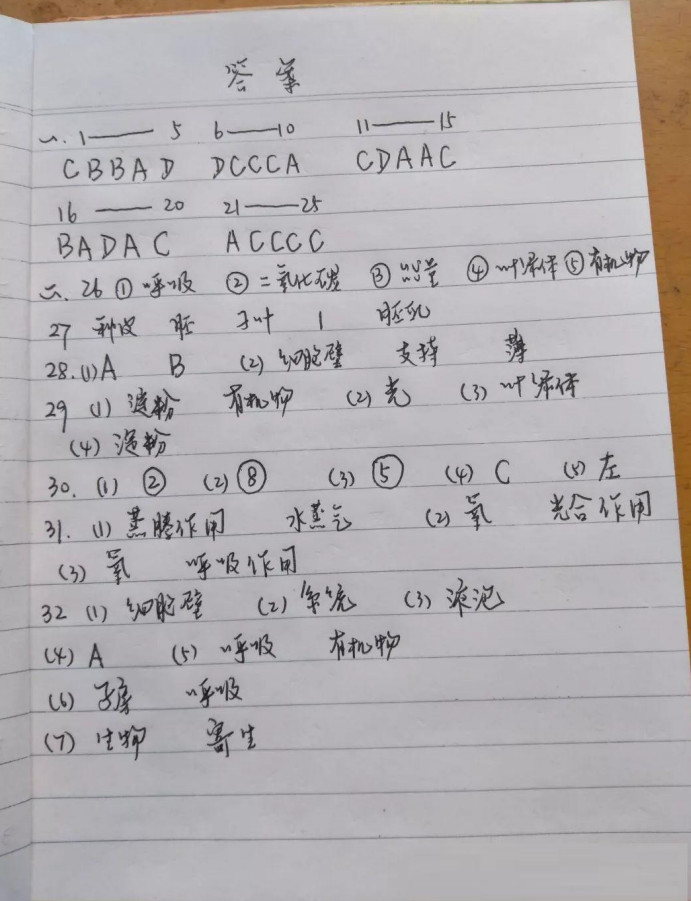 答案
一. 1——5 6——10 11——15
CBBAD DCCCA CDAAC
16——20 21——25
BADAC ACCCC
二. 26 ①呼吸 ②二氧化碳 ③能量 ④叶绿体 ⑤有机物
27 种皮 胚 子叶 1 胚乳
28. (1) A B (2) 细胞壁 支持 薄
29 (1) 淀粉 有机物 (2) 光 (3) 叶绿体
(4) 淀粉
30. (1) ② (2) ⑧ (3) ⑤ (4) C (5) 左
31. (1) 蒸腾作用 水蒸气 (2) 氧 光合作用
(3) 氧 呼吸作用
32 (1) 细胞壁 (2) 系统 (3) 液泡
(4) A (5) 呼吸 有机物
(6) 子房 呼吸
(7) 生物 寄生